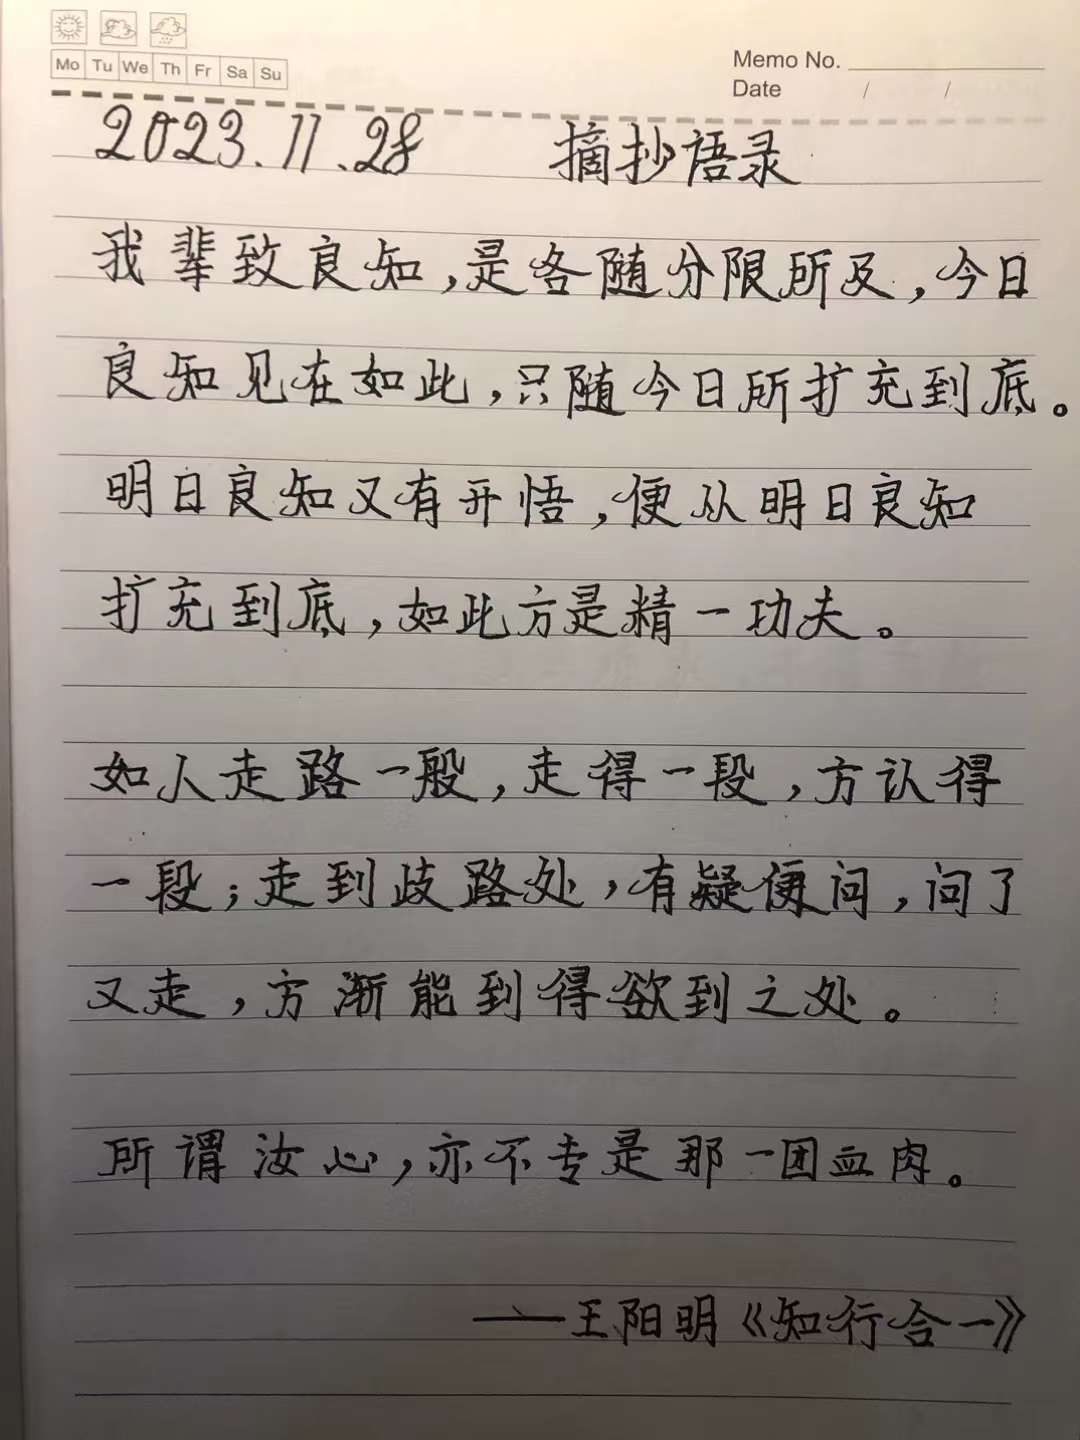 Mo Tu We Th Fr Sa Su
Memo No.
Date / /
2023.11.28 摘抄语录
我辈致良知，是各随分限所及，今日
良知见在如此，只随今日所扩充到底。
明日良知又有开悟，便从明日良知
扩充到底，如此方是精一功夫。
如人走路一般，走得一段，方认得
一段；走到歧路处，有疑便问，问了
又走，方渐能到得欲到之处。
所谓汝心，亦不专是那一团血肉。
——王阳明《知行合一》